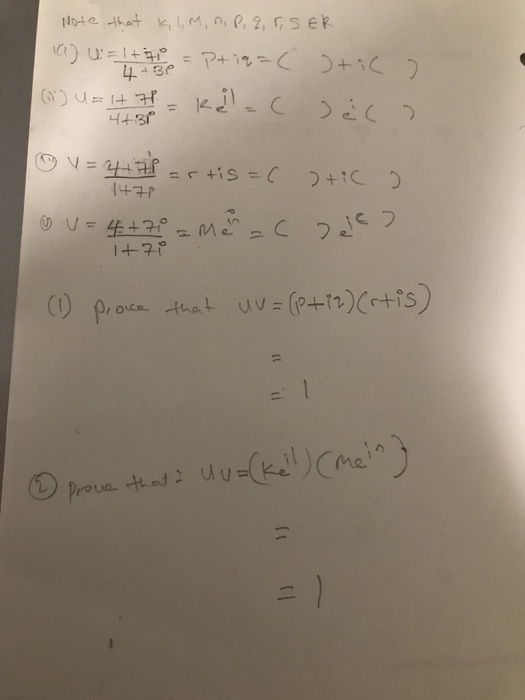 Note that K, l, M, n, P, q, r, S ∈ R
(i) U = 1+7i / 4+3i = P+iq = ( )+i( )
(ii) U = 1+7i / 4+3i = Ke^il = ( )e^i( )
V = 4+7i / 1+7i = r+is = ( )+i( )
V = 4+7i / 1+7i = Me^in = ( )e^i( )
(1) prove that UV = (P+iq)(r+is)
=
= 1
(2) prove that: UV = (Ke^il)(Me^in)
=
= 1